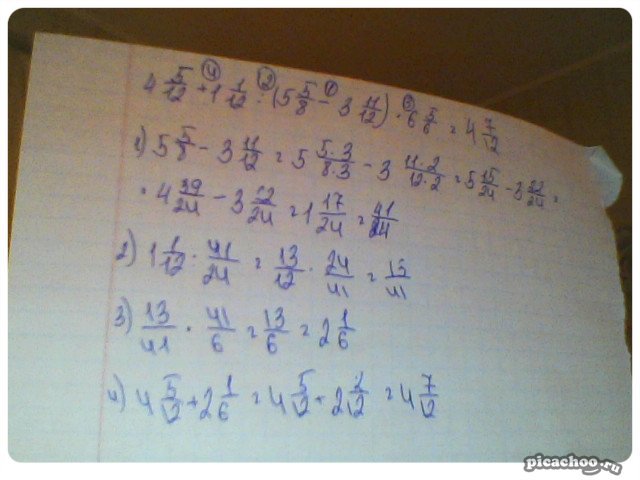 4 5/12 + 1 1/12 : (5 5/8 - 3 11/12) · 6 5/6 = 4 7/12
1) 5 5/8 - 3 11/12 = 5 5·3/8·3 - 3 11·2/12·2 = 5 15/24 - 3 22/24 =
= 4 39/24 - 3 22/24 = 1 17/24 = 41/24
2) 1 1/12 : 41/24 = 13/12 · 24/41 = 
3) 13/41 · 41/6 = 13/6 = 2 1/6
4) 4 5/12 + 2 1/6 = 4 5/12 + 2 2/12 = 4 7/12
picachoo.ru